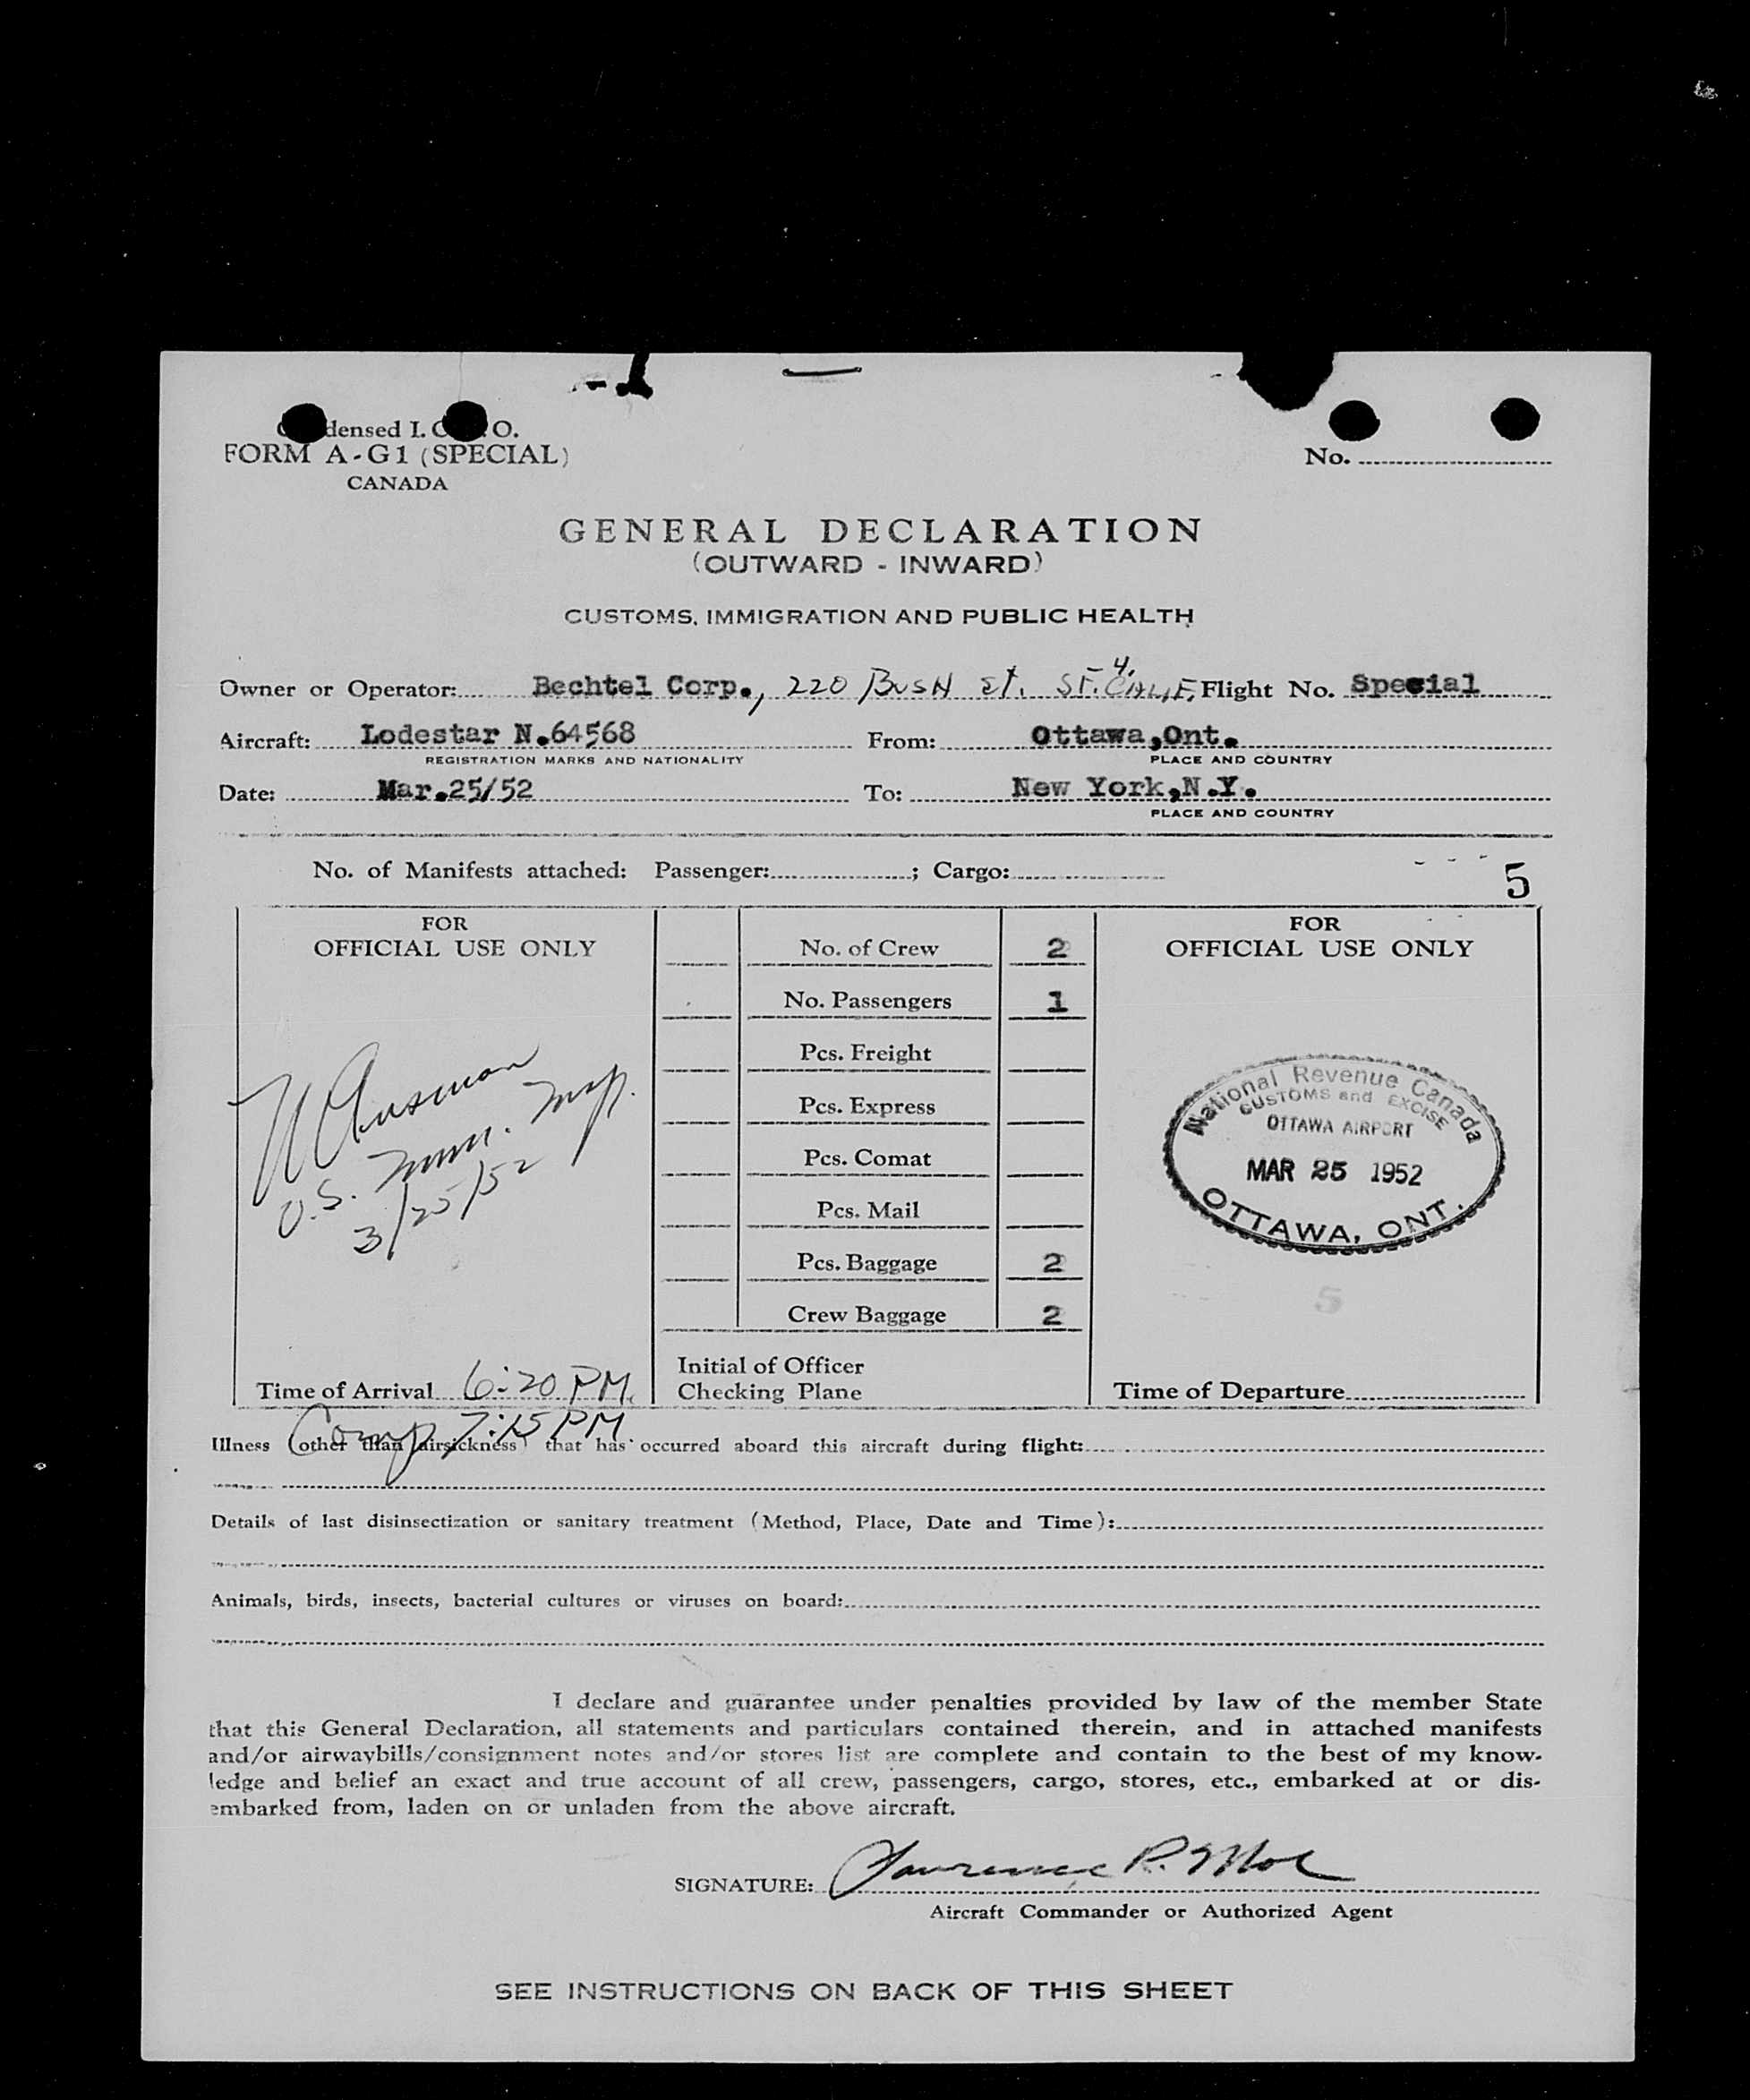 densed I. C O.
FORM A-G1 (SPECIAL)
CANADA
No.
GENERAL DECLARATION
(OUTWARD - INWARD)
CUSTOMS, IMMIGRATION AND PUBLIC HEALTH
Owner or Operator: Bechtel Corp., 220 BUSH St. S.F. 4, CALIF. Flight No. Special
Aircraft: Lodestar N.64568 From: Ottawa,Ont.
REGISTRATION MARKS AND NATIONALITY PLACE AND COUNTRY
Date: Mar.25/52 To: New York,N.Y.
PLACE AND COUNTRY
No. of Manifests attached: Passenger: ; Cargo: 5
FOR
OFFICIAL USE ONLY
U.S. Imm. Insp.
3/25/52
Time of Arrival 6:20 PM.
Comp 7:15 PM
No. of Crew 2
No. Passengers 1
Pcs. Freight
Pcs. Express
Pcs. Comat
Pcs. Mail
Pcs. Baggage 2
Crew Baggage 2
Initial of Officer
Checking Plane
FOR
OFFICIAL USE ONLY
National Revenue Canada
CUSTOMS and EXCISE
OTTAWA AIRPORT
MAR 25 1952
OTTAWA, ONT.
5
Time of Departure
Illness (other than airsickness) that has occurred aboard this aircraft during flight:
Details of last disinsectization or sanitary treatment (Method, Place, Date and Time):
Animals, birds, insects, bacterial cultures or viruses on board:
I declare and guarantee under penalties provided by law of the member State
that this General Declaration, all statements and particulars contained therein, and in attached manifests
and/or airwaybills/consignment notes and/or stores list are complete and contain to the best of my know-
ledge and belief an exact and true account of all crew, passengers, cargo, stores, etc., embarked at or dis-
embarked from, laden on or unladen from the above aircraft.
SIGNATURE: Lawrence R. Moe
Aircraft Commander or Authorized Agent
SEE INSTRUCTIONS ON BACK OF THIS SHEET